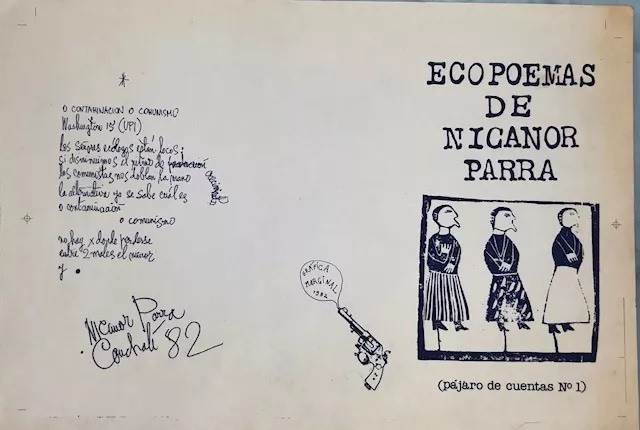 O CONTAMINACION O COMUNISMO
Washington 15 (UPI)
los señores ecólogos están locos;
si disminuimos el ritmo de
los comunistas nos doblan la mano
la alternativa ya se sabe cuál es
o contaminación
o comunismo
no hay x donde perderse
entre 2 males el menor
y
Nicanor Parra
Conchalí 82
GRÁFICA
MARGINAL
1982
ECOPOEMAS
DE
NICANOR
PARRA
(pájaro de cuentas Nº 1)